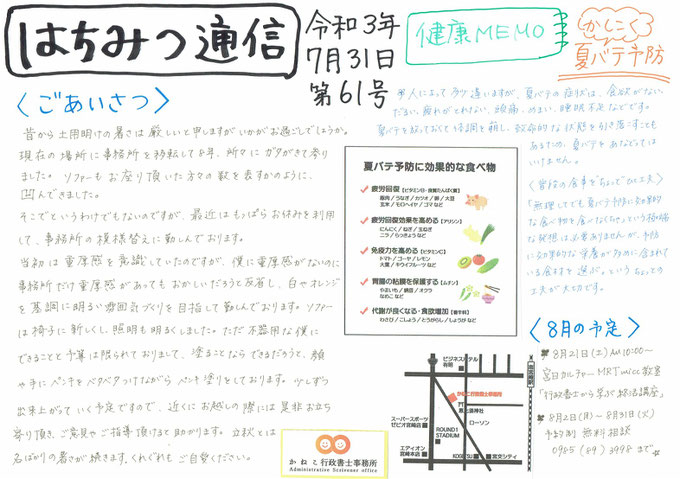 はちみつ通信
令和3年
7月31日
第61号
健康MEMO
かしこく
夏バテ予防
〈ごあいさつ〉
昔から土用明けの暑さは厳しいと申しますがいかがお過ごしでしょうか。
現在の場所に事務所を移転して8年、所々にガタがきて参り
ました。ソファーもお座り頂いた方々の数を表すかのように、
凹んできました。
そこでというわけでもないのですが、最近はもっぱらお休みを利用
して、事務所の模様替えに勤しんでおります。
当初は重厚感を意識していたのですが、僕に重厚感がないのに
事務所だけ重厚感があってもおかしいだろうと反省し、白やオレンジ
を基調に明るい雰囲気づくりを目指して勤しんでおります。ソファー
は椅子に新しくし、照明も明るくしました。ただ不器用な僕に
できることと予算は限られておりまして、塗ることならできるだろうと、顔
や手にペンキをベタベタつけながらペンキ塗りをしております。少しずつ
出来上がっていく予定ですので、近くにお越しの際には是非お立ち
寄り頂き、ご意見やご指導頂けると助かります。立秋とは
名ばかりの暑さが続きます。くれぐれもご自愛ください。
人によって多少違いますが、夏バテの症状は、食欲がない、
だるい、疲れがとれない、頭痛、めまい、睡眠不足などです。
夏バテを放っておくと体調を崩し、致命的な状態を引き起こすことも
あるため、夏バテをあなどっては
いけません。
夏バテ予防に効果的な食べ物
疲労回復【ビタミンB・良質たんぱく質】
豚肉/うなぎ/カツオ/卵/大豆
玄米/モロヘイヤ/ゴマ など
疲労回復効果を高める【アリシン】
にんにく/ねぎ/玉ねぎ
ニラ/らっきょう など
免疫力を高める【ビタミンC】
トマト/ゴーヤ/レモン
大葉/キウイフルーツ など
胃腸の粘膜を保護する【ムチン】
やまいも/納豆/オクラ
なめこ など
代謝が良くなる・食欲増加【香辛料】
わさび/こしょう/とうがらし/しょうが など
〈普段の食事をちょっとひと工夫〉
「無理してでも夏バテ予防に効果的
な食べ物を食べなくちゃ」という極端
な発想は必要ありませんが、予防
に効果的な栄養が多めに含まれて
いる食材を選ぶ、というちょっとの
工夫が大切です。
〈8月の予定〉
8月21日(土)AM10:00~
宮日カルチャーMRTmicc教室
「行政書士から学ぶ終活講座」
8月2日(月)~8月31日(火)
予約制 無料相談
0985(89)3998まで
ビジネスホテル
有明
かねこ行政書士事務所
南宮崎駅
恵比須神社
ローソン
スーパースポーツ
ゼビオ宮崎店
ROUND1
STADIUM
エディオン
宮崎本店
KOGETSU
宮交シティ
かねこ行政書士事務所
Administrative Scrivener office